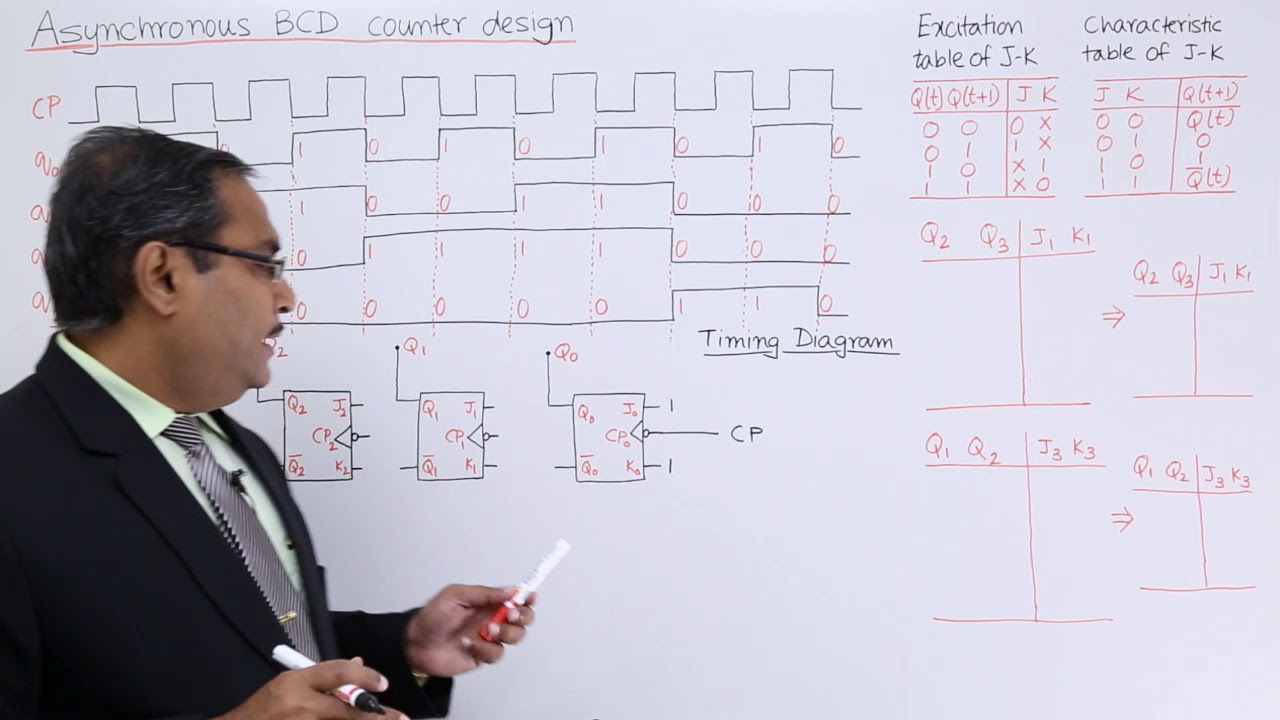 Asynchronous BCD counter design
CP
q₀ 0 1 0 1 0 1 0 1 0
q 1 0 0 1 1 0 0 0
q 0 1 1 1 1 0 0 0
q 0 0 0 0 0 1 1 0
Timing Diagram
2 Q₁ Q₀
Q₂ J₂ CP₂ Q̅₂ K₂
Q₁ J₁ CP₁ Q̅₁ K₁
Q₀ J₀ 1 CP₀ CP Q̅₀ K₀ 1
Excitation
table of J-K
Q(t) Q(t+1) J K
0 0 0 X
0 1 1 X
1 0 X 1
1 1 X 0
Characteristic
table of J-K
J K Q(t+1)
0 0 Q(t)
0 1 0
1 0 1
1 1 Q̅(t)
Q₂ Q₃ J₁ K₁
⇒ Q₂ Q₃ J₁ K₁
Q₁ Q₂ J₃ K₃
⇒ Q₁ Q₂ J₃ K₃